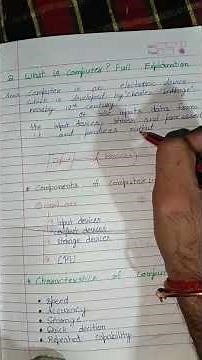 2. What is computer? Full Explanation
Computer is an electronic device
which is developed by "charles babbage"
nearly 19th century
inputs data from
the input devices, store and processed
it and produces output
Input
Process
* Components of computer
input devices
output devices
storage devices
CPU
* Characteristics of
Speed
Accuracy
Storage
Quick decition
Repeated capability